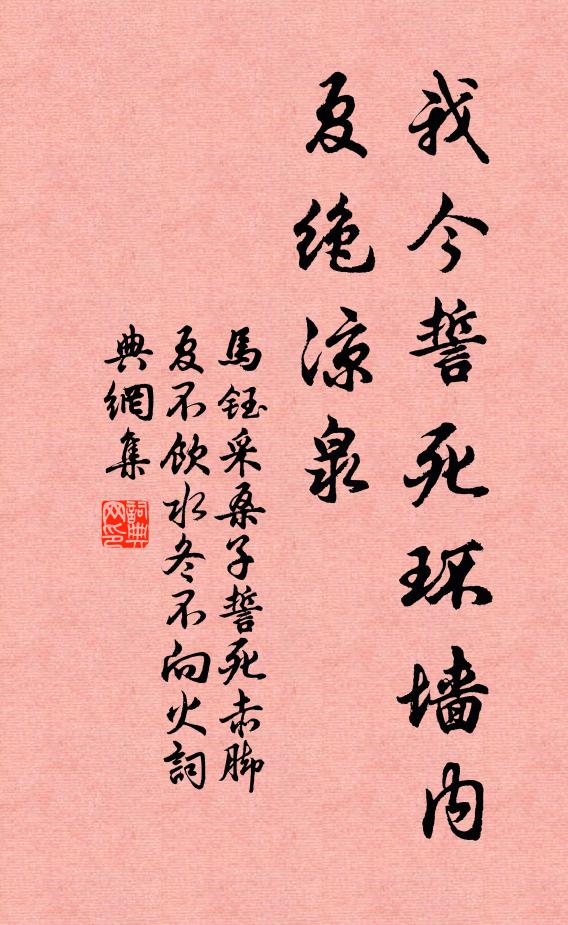 我今誓死环墙内
夏绝凉泉
馬鈺采桑子誓死赤脚
夏不飲水冬不向火詞
典網集
詞典
网印